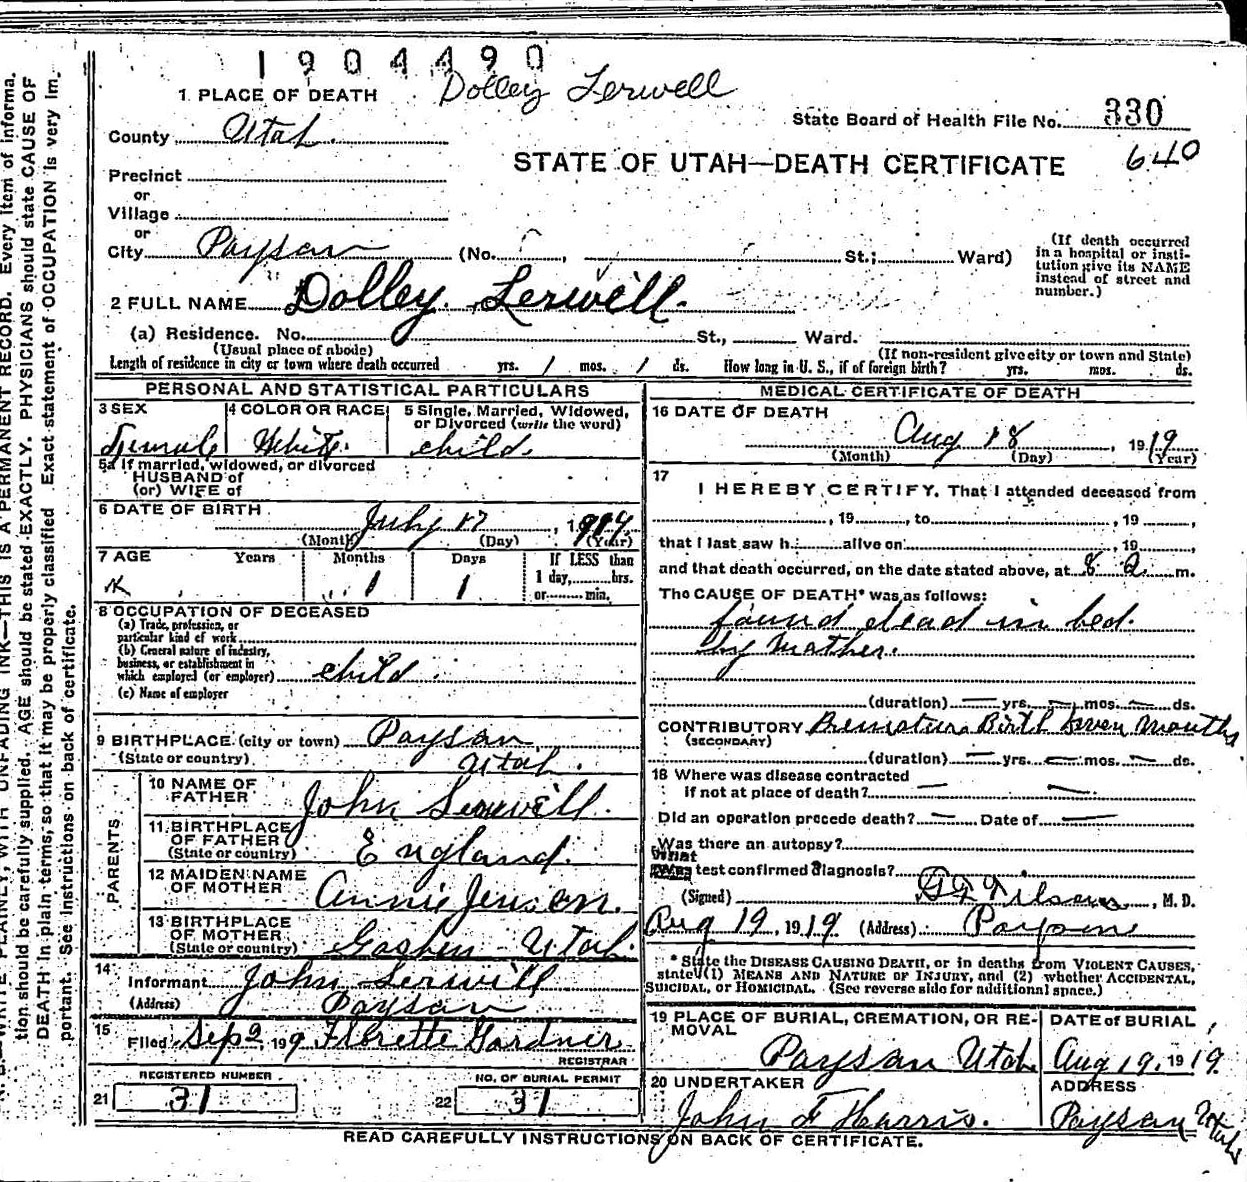 1904490
Dolley Lerwell
1 PLACE OF DEATH
State Board of Health File No. 330
County Utah
STATE OF UTAH—DEATH CERTIFICATE 640
Precinct
or
Village
or
City Payson (No. , St.; Ward)
(If death occurred in a hospital or institution give its NAME instead of street and number.)
2 FULL NAME Dolley Lerwill.
(a) Residence. No. St., Ward.
(Usual place of abode) (If non-resident give city or town and State)
Length of residence in city or town where death occurred yrs. 1 mos. 1 ds. How long in U. S., if of foreign birth? yrs. mos. ds.
PERSONAL AND STATISTICAL PARTICULARS
3 SEX 4 COLOR OR RACE 5 Single, Married, Widowed, or Divorced (write the word)
Female White. child.
5a If married, widowed, or divorced
HUSBAND of
(or) WIFE of
6 DATE OF BIRTH
July 17, 1919
(Month) (Day) (Year)
7 AGE Years Months Days If LESS than
1 1 1 day, hrs.
or min.
8 OCCUPATION OF DECEASED
(a) Trade, profession, or
particular kind of work
(b) General nature of industry,
business, or establishment in
which employed (or employer) child.
(c) Name of employer
9 BIRTHPLACE (city or town) Payson
(State or country) Utah.
PARENTS
10 NAME OF FATHER John Lerwill.
11 BIRTHPLACE OF FATHER (State or country) England.
12 MAIDEN NAME OF MOTHER Annie Jenson.
13 BIRTHPLACE OF MOTHER (State or country) Goshen Utah.
14
Informant John Lerwill
(Address) Payson
15
Filed Sep 2, 199 Florette Gardner
REGISTRAR
REGISTERED NUMBER NO. OF BURIAL PERMIT
21 31 22 31
MEDICAL CERTIFICATE OF DEATH
16 DATE OF DEATH
Aug 18 1919
(Month) (Day) (Year)
17
I HEREBY CERTIFY, That I attended deceased from
, 19 , to , 19 ,
that I last saw h alive on , 19 ,
and that death occurred, on the date stated above, at 8 a m.
The CAUSE OF DEATH* was as follows:
found dead in bed.
by Mother.
(duration) — yrs. — mos. — ds.
CONTRIBUTORY Premature Birth Seven Months
(SECONDARY)
(duration) — yrs. — mos. — ds.
18 Where was disease contracted
if not at place of death? —
Did an operation precede death? — Date of —
Was there an autopsy?
What test confirmed diagnosis?
(Signed) M. D.
Aug 19, 1919 (Address) Payson
* State the DISEASE CAUSING DEATH, or in deaths from VIOLENT CAUSES,
state (1) MEANS AND NATURE OF INJURY, and (2) whether ACCIDENTAL,
SUICIDAL, or HOMICIDAL. (See reverse side for additional space.)
19 PLACE OF BURIAL, CREMATION, OR REMOVAL DATE of BURIAL
Payson Utah Aug 19, 1919
20 UNDERTAKER ADDRESS
John F Harris. Payson Utah
READ CAREFULLY INSTRUCTIONS ON BACK OF CERTIFICATE.
WRITE PLAINLY, WITH UNFADING INK—THIS IS A PERMANENT RECORD. Every item of informa-
tion should be carefully supplied. AGE should be stated EXACTLY. PHYSICIANS should state CAUSE OF
DEATH in plain terms, so that it may be properly classified. Exact statement of OCCUPATION is very im-
portant. See instructions on back of certificate.